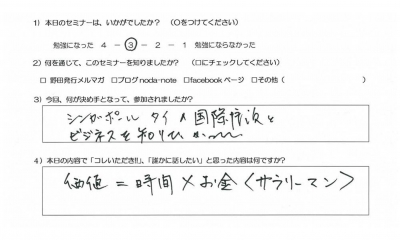 1) 本日のセミナーは、いかがでしたか? (〇をつけてください)
勉強になった 4 - 3 - 2 - 1 勉強にならなかった
2) 何を通じて、このセミナーを知りましたか? (□にチェックしてください)
□ 野田発行メルマガ □ブログnoda-note □facebookページ □その他 ( )
3) 今回、何が決め手となって、参加されましたか?
シンガポール タイ 国際 と
ビジネスを知りたい
4) 本日の内容で「コレいただき!!」、「誰かに話したい」と思った内容は何ですか?
価値 = 時間 × お金 < サラリーマン >